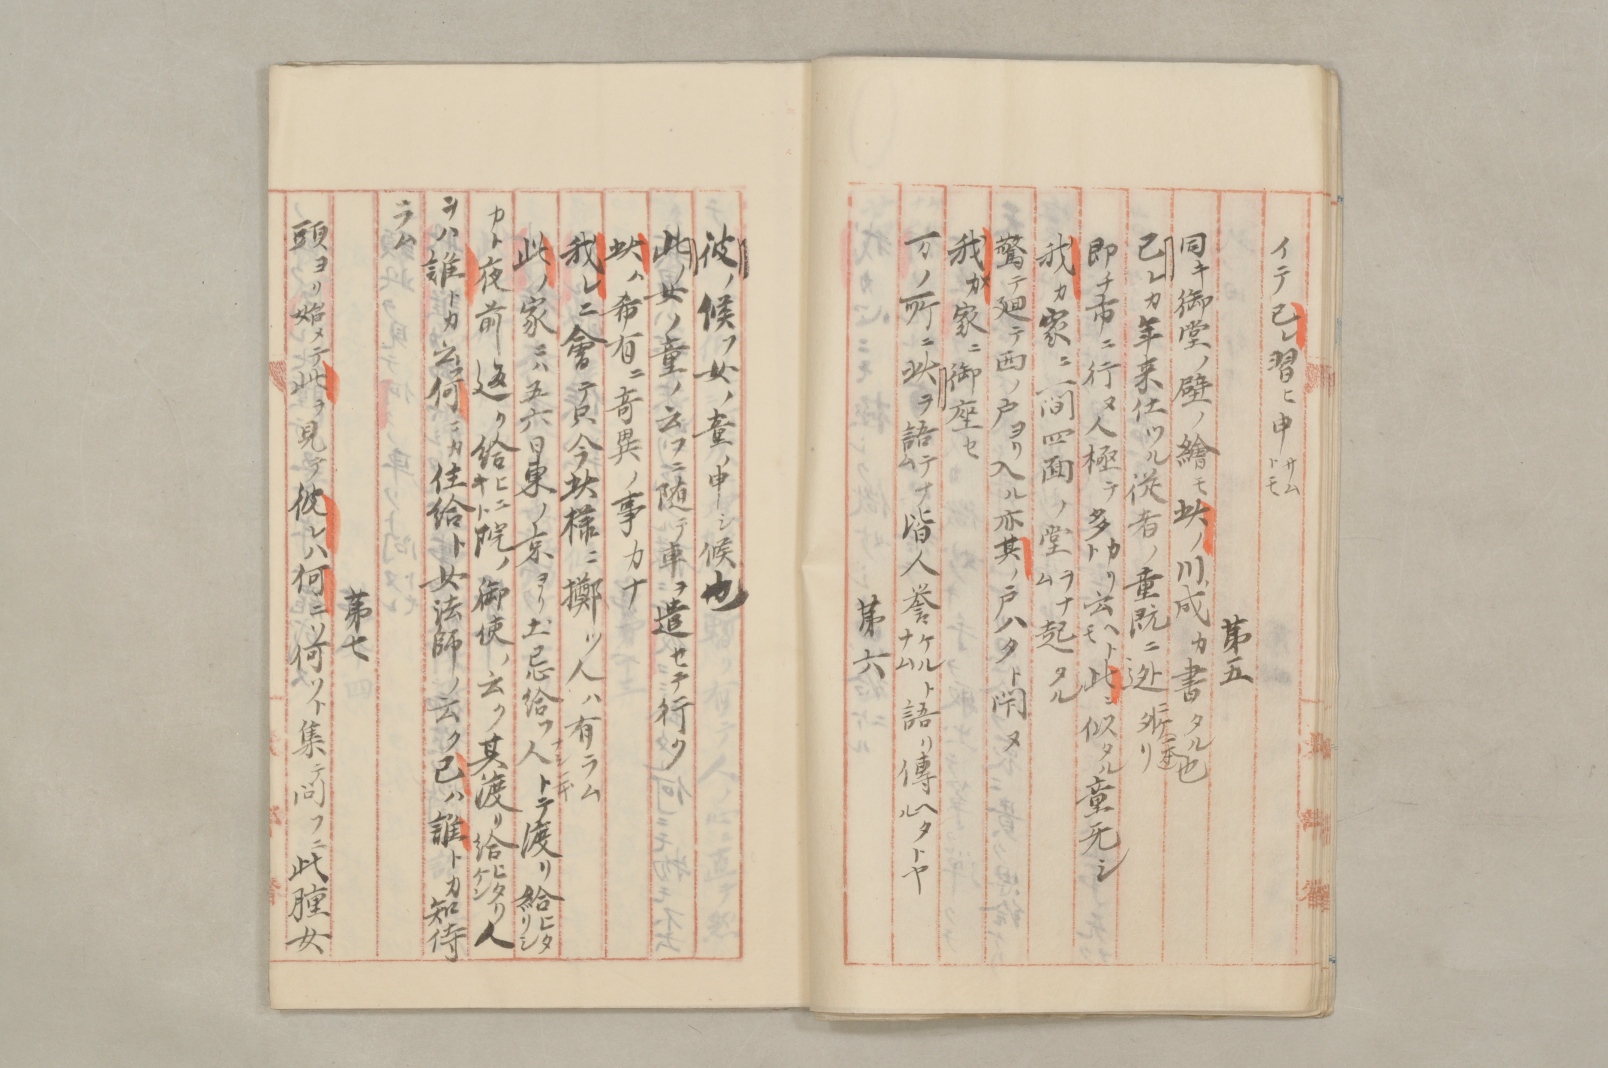 イテ己レ習ヒ申サムトモ
第五
同キ御堂ノ壁ノ繪モ此ノ川成カ書タル也
己レカ年来仕ツル従者ノ童既ニ迯ニケリ
即チ市ニ行ヌ人極テ多カリト云ヘトモ此ニ似タル童死シ
我カ家ニ一間四面ノ堂ヲナム起タル
驚テ廻テ西ノ戸ヨリ入ル亦其ノ戸ハタト閇ヌ
我ガ家ニ御座セ
万ノ所ニ此ヲ語テナム皆人誉ケルトナム語リ傳ヘタルトヤ
第六
彼ノ候フ女ノ童ノ申シ候也
此ノ女ノ童ノ云フニ随テ車ヲ遣セテ行ク
此ハ希有ニ奇異ノ事カナ
我レニ會テ只今此様ニ擲ツ人ハ有ラム
此ノ家ニハ五六日東ノ京ヨリ土忌給フ人トテ渡リ給ヒタリシ
カト夜前返リ給ヒニキト院ノ御使ノ云ク其渡リ給ヒタリケン人
ヲハ誰トカ云何ニカ住給ト女法師ノ云ク己ハ誰トカ知侍
ラム
第七
頭ヨリ始メテ此ヲ見テ彼レハ何ニソ何ソト集テ問フニ此腫女